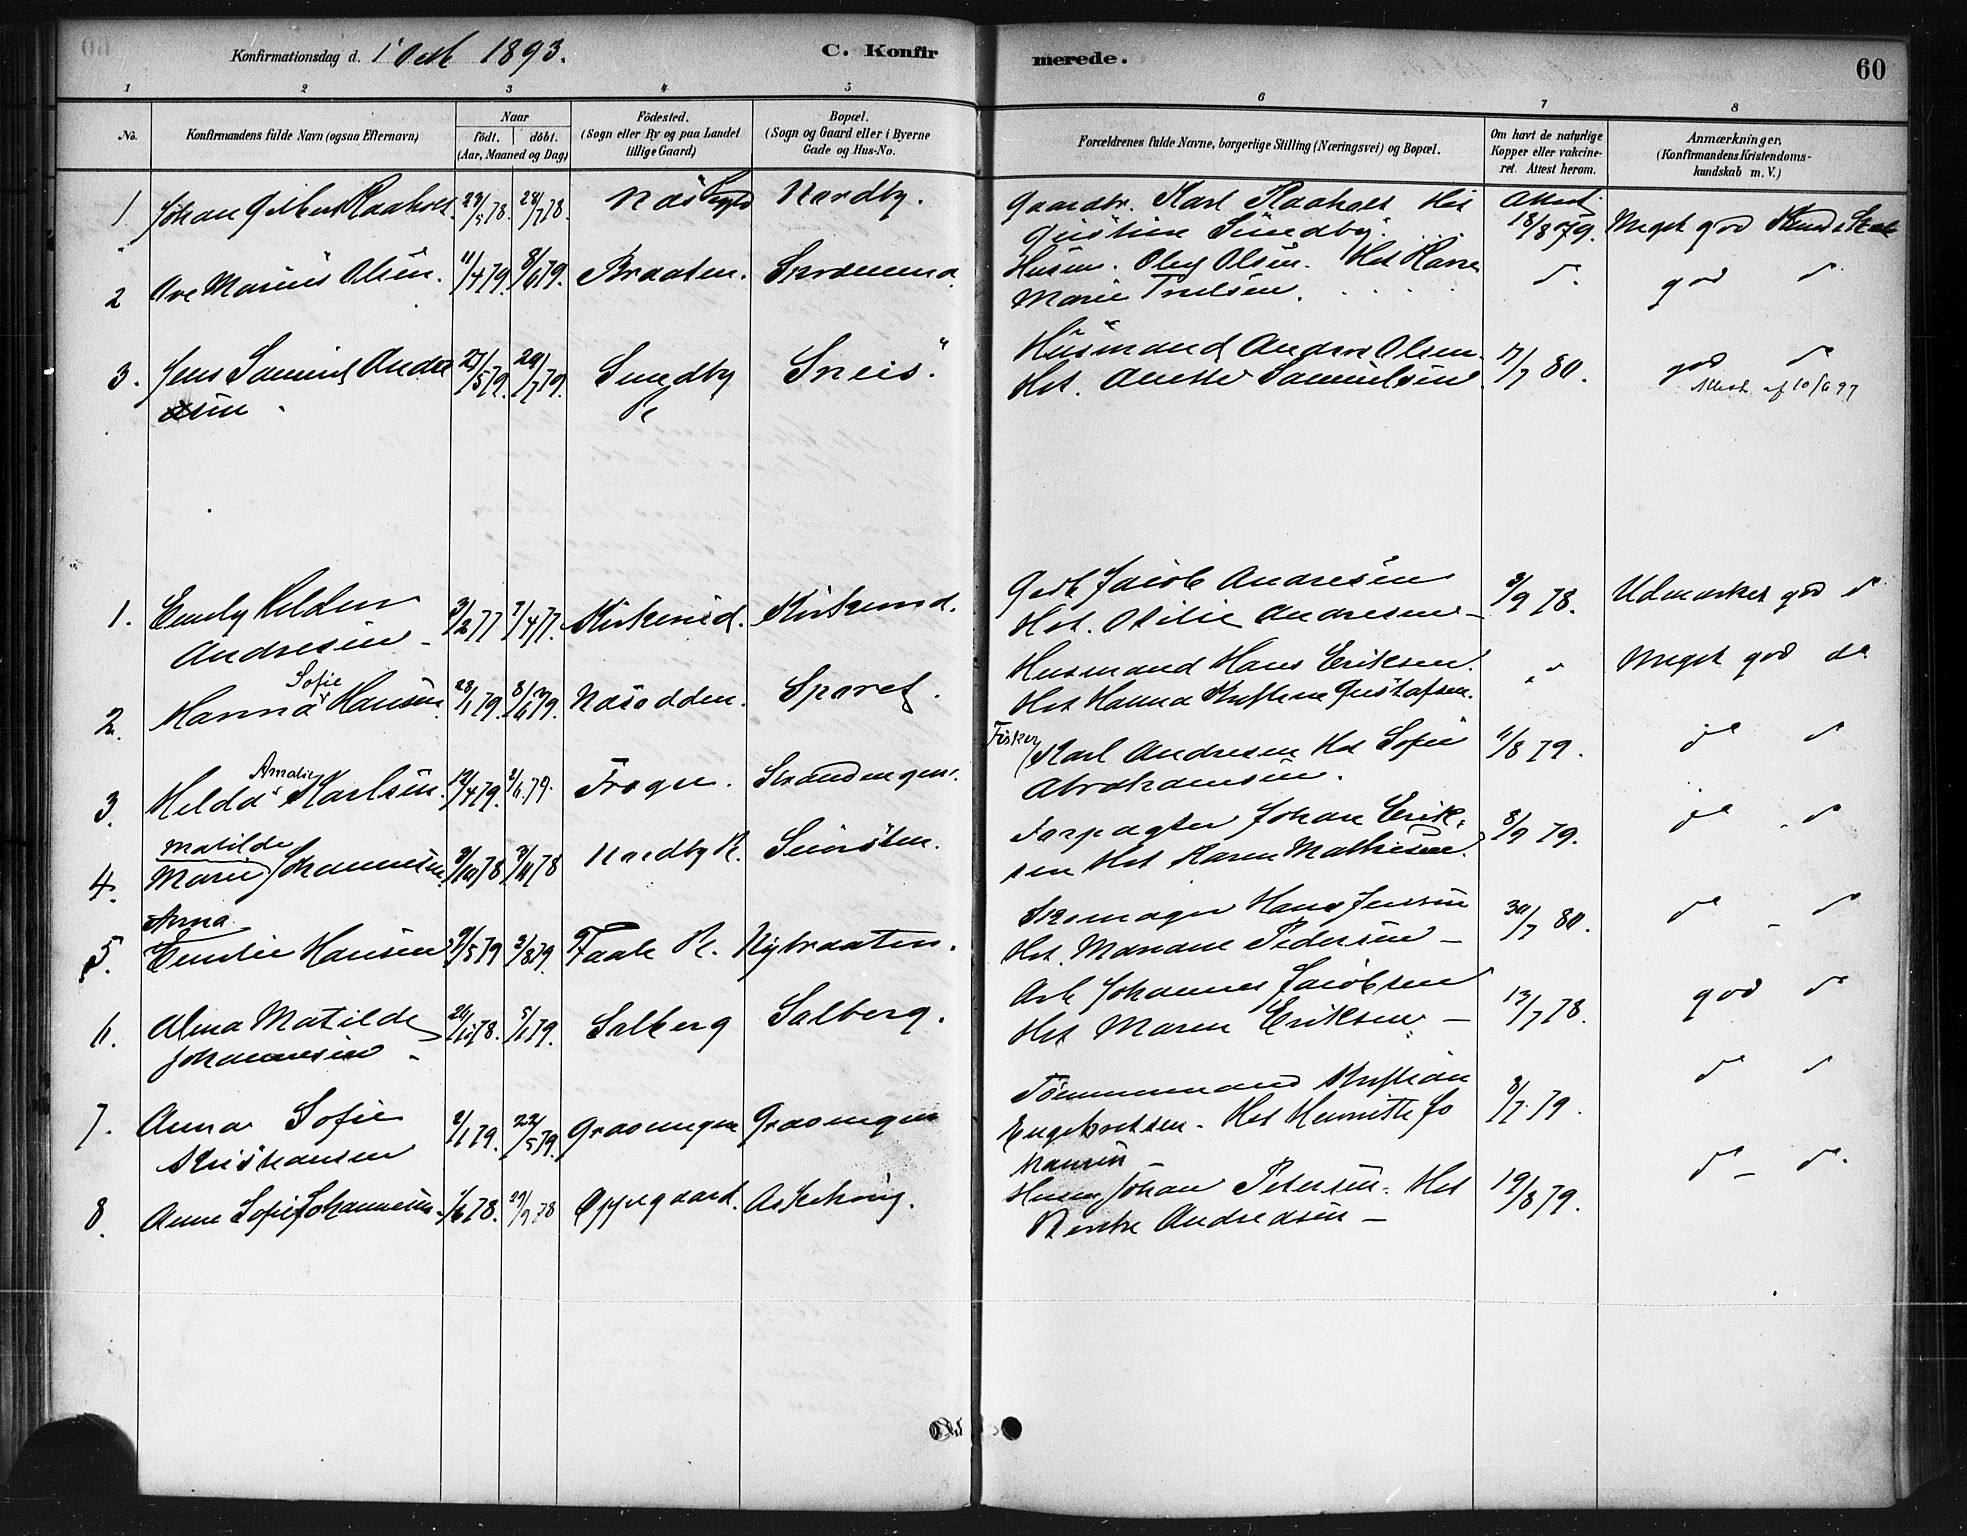 Konfirmationsdag d. 1' Octb 1893. C. Konfir
merede. 60
1 2 3 4 5 6 7 8
No. Konfirmandens fulde Navn (ogsaa Efternavn) Naar født. døbt. (Aar, Maaned og Dag) Födested. (Sogn eller By og paa Landet tillige Gaard) Bopæl. (Sogn og Gaard eller i Byerne Gade og Hus-No.
Forældrenes fulde Navne, borgerlige Stilling (Næringsvei) og Bopæl. Om havt de naturlige Kopper eller vakcineret. Attest herom. Anmærkninger, (Konfirmandens Kristendomskundskab m. V.)
1 Johan Gilbert Raaholt 28/7 78. Nordby.
Gaardbr. Karl Raaholt Hst Attest
Sundby. 18/8 79. Meget god Kundskab
2 Ove Marius Olsen. 11/4 79. 8/6 79. Braaten.
Husm. Ole Olsen. Hst d. god d
Marie Trulsen.
3. Jens Samuel Andre 27/5 79. 20/7 79. Sundby Sneis.
Husmand Anders Olsen 17/7 80. god d
sen. Hst. Anette Samuelsen Attest af 10/6 97
1. Emely Helder 3/2 77 2/4 77. Kirkerud. Kirkerud.
Gdb Jacob Andresen 3/9 78. Udmærket god d
Andresen Hst. Otilie Andresen
Sofie
2. Hanna Hansen 28/1 79. 8/6 79. Næsodden. Sporet.
Husmand Hans Eriksen. Meget god do
Hst Hanna Kristine Gustafsen.
Amalie
3. Hilda Karlsen. 12/4 79. 2/6 79. Frogn. Strandengen.
Fisker Karl Andresen Hst Sofie 11/8 79. do d
Abrahamsen.
Matilde
4. Marie Johannesen 3/10 78 3/11 78 Nordby R. Seiersten.
Forpagter Johan Erik- 8/9 79. do d
sen Hst Karen Mathisen.
Anna
5. Emilie Hansen 9/5 79 3/8 79. Faale R. Nybraaten.
Skomager Hans Jensen 30/7 80. do d
Hst. Mariane Pedersen
6. Alma Matilde 5/1 79. Solberg Solberg.
Arb Johannes Jacobsen 13/7 78. god do
Johannesen Hst Maren Eriksen.
7. Anna Sofie 2/1 79. 22/5 79. Graaengen Graaengen
Tømmermand Kristian 8/7 79. do d
Kristiansen Engebretsen. Hst Henriette Jo
hansen
8. Anne Sofie Johannesen 1/6 78. 29/9 78 Oppegaard. Askehoug.
Husm Johan Petersen. Hst 19/8 79. do d.
Berthe Andreasen